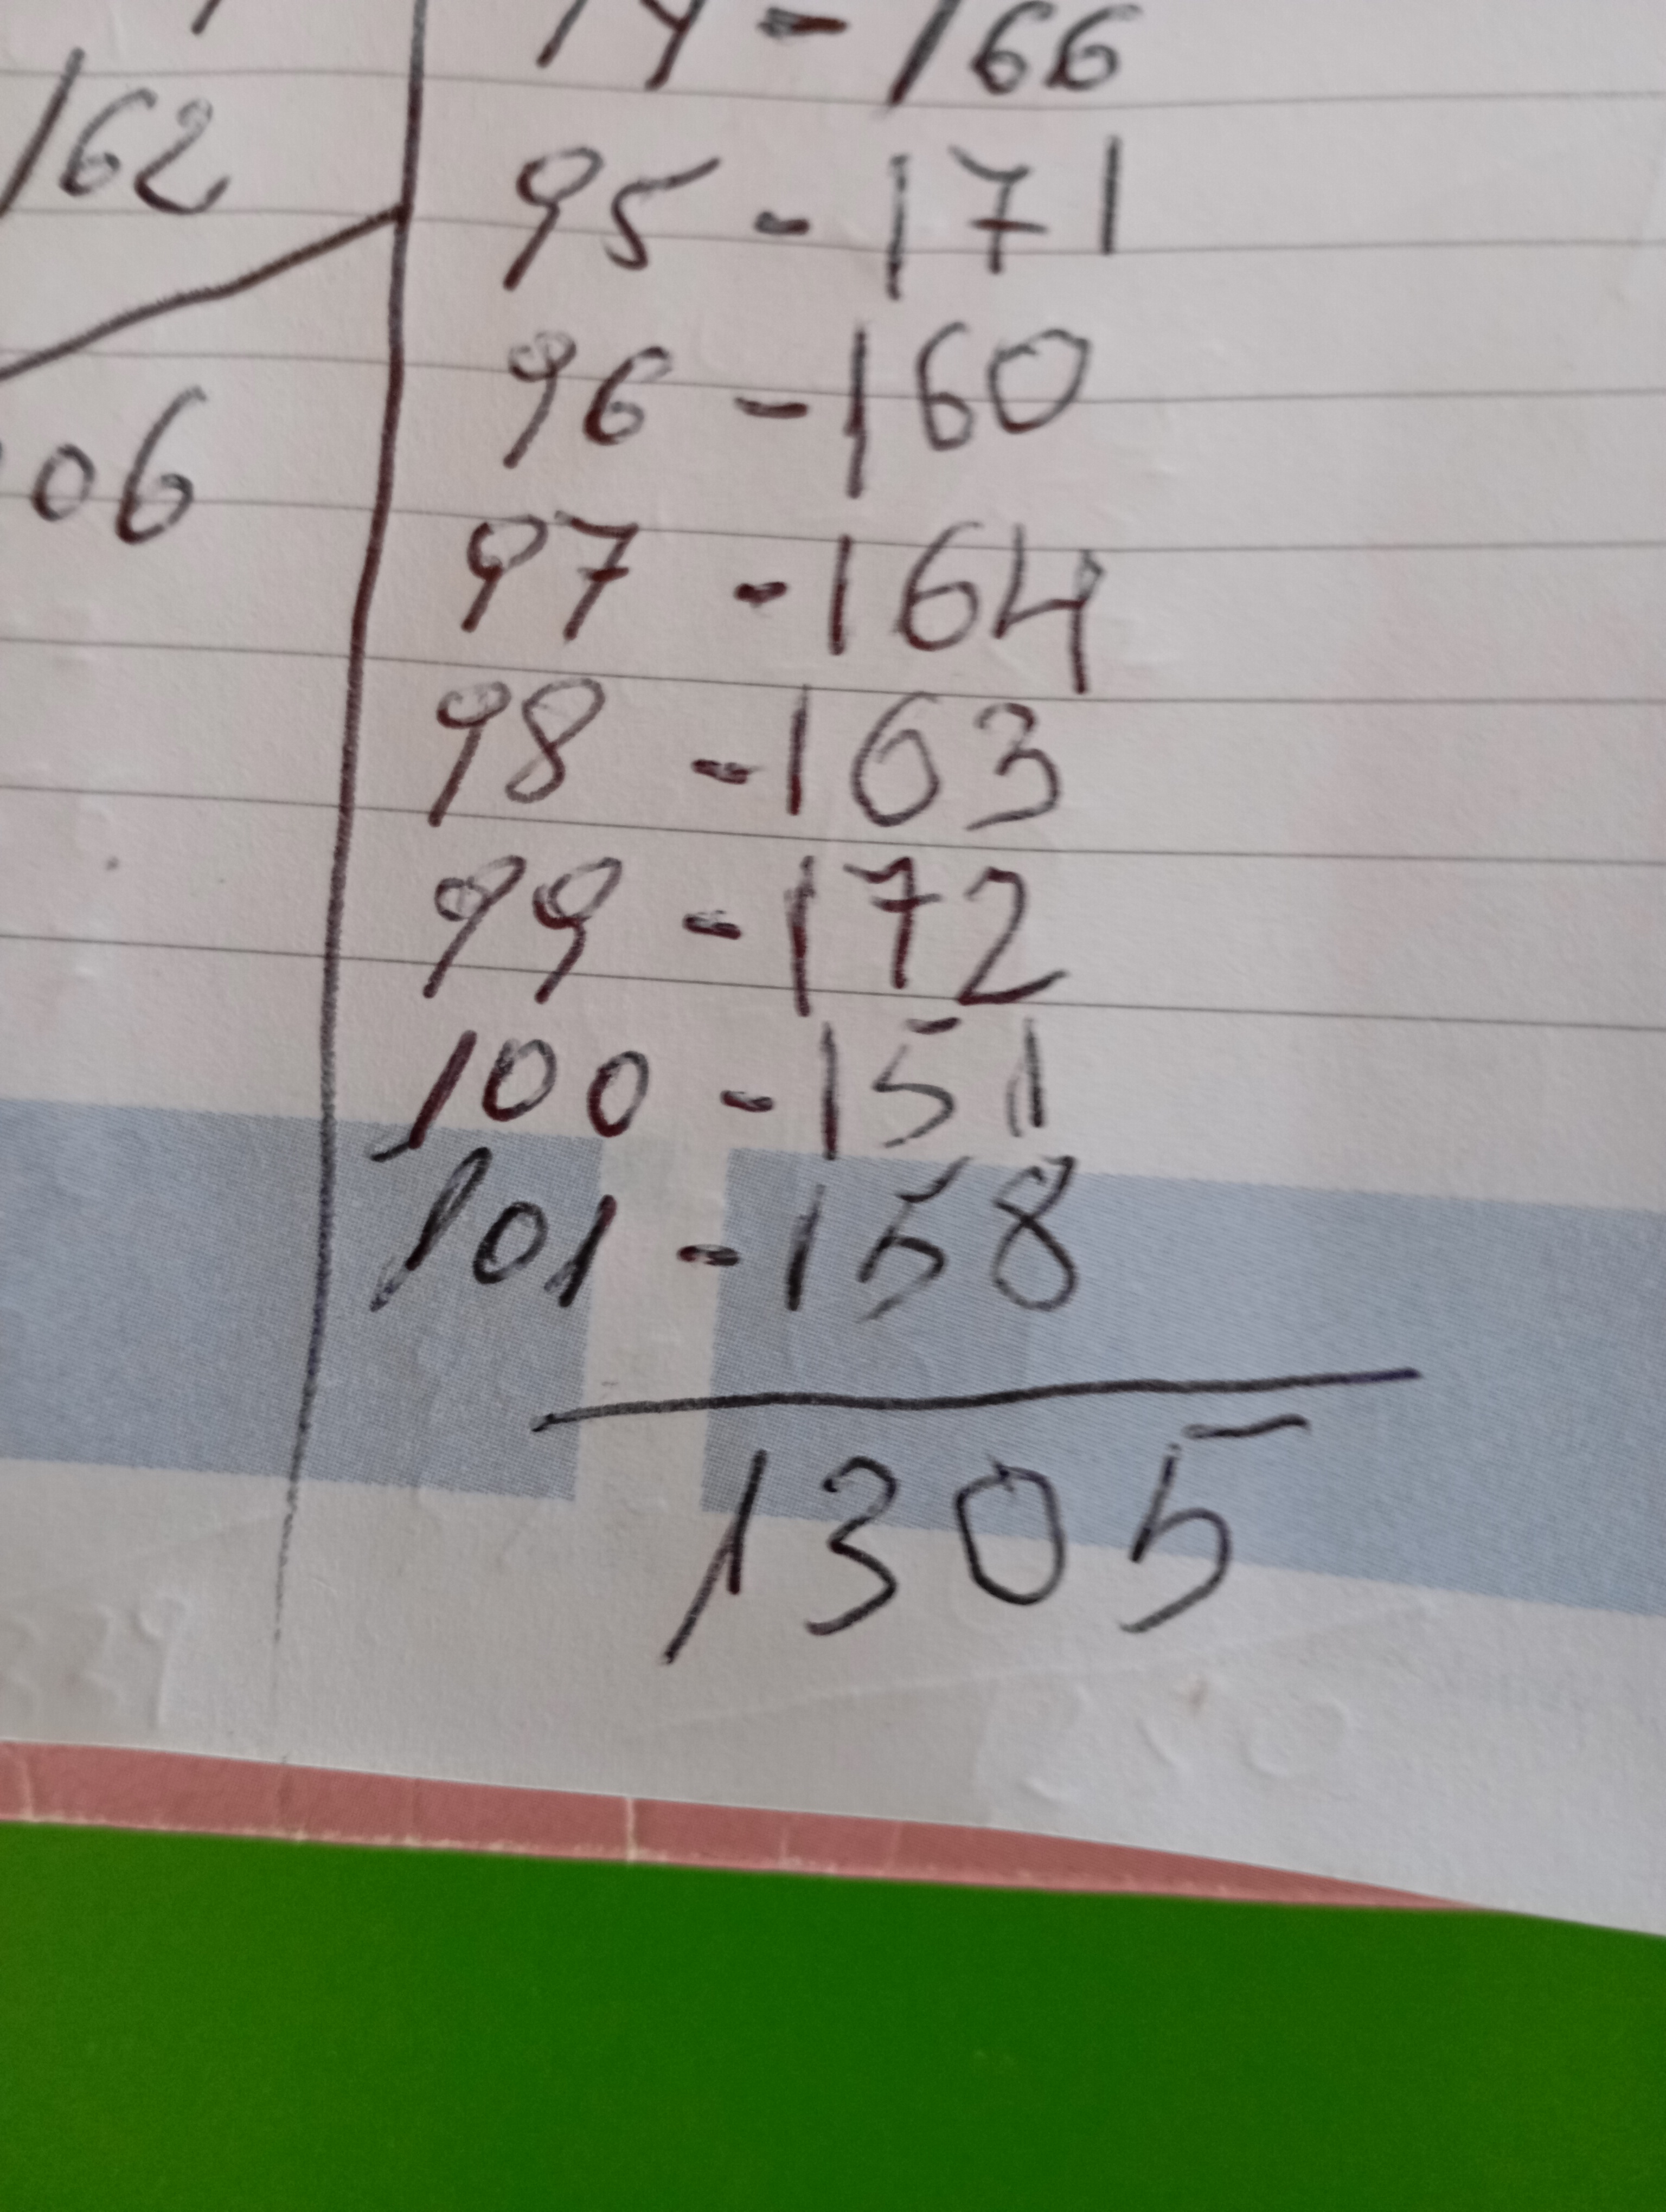 162
06
94 - 166
95 - 171
96 - 160
97 - 164
98 - 163
99 - 172
100 - 151
101 - 158
1305